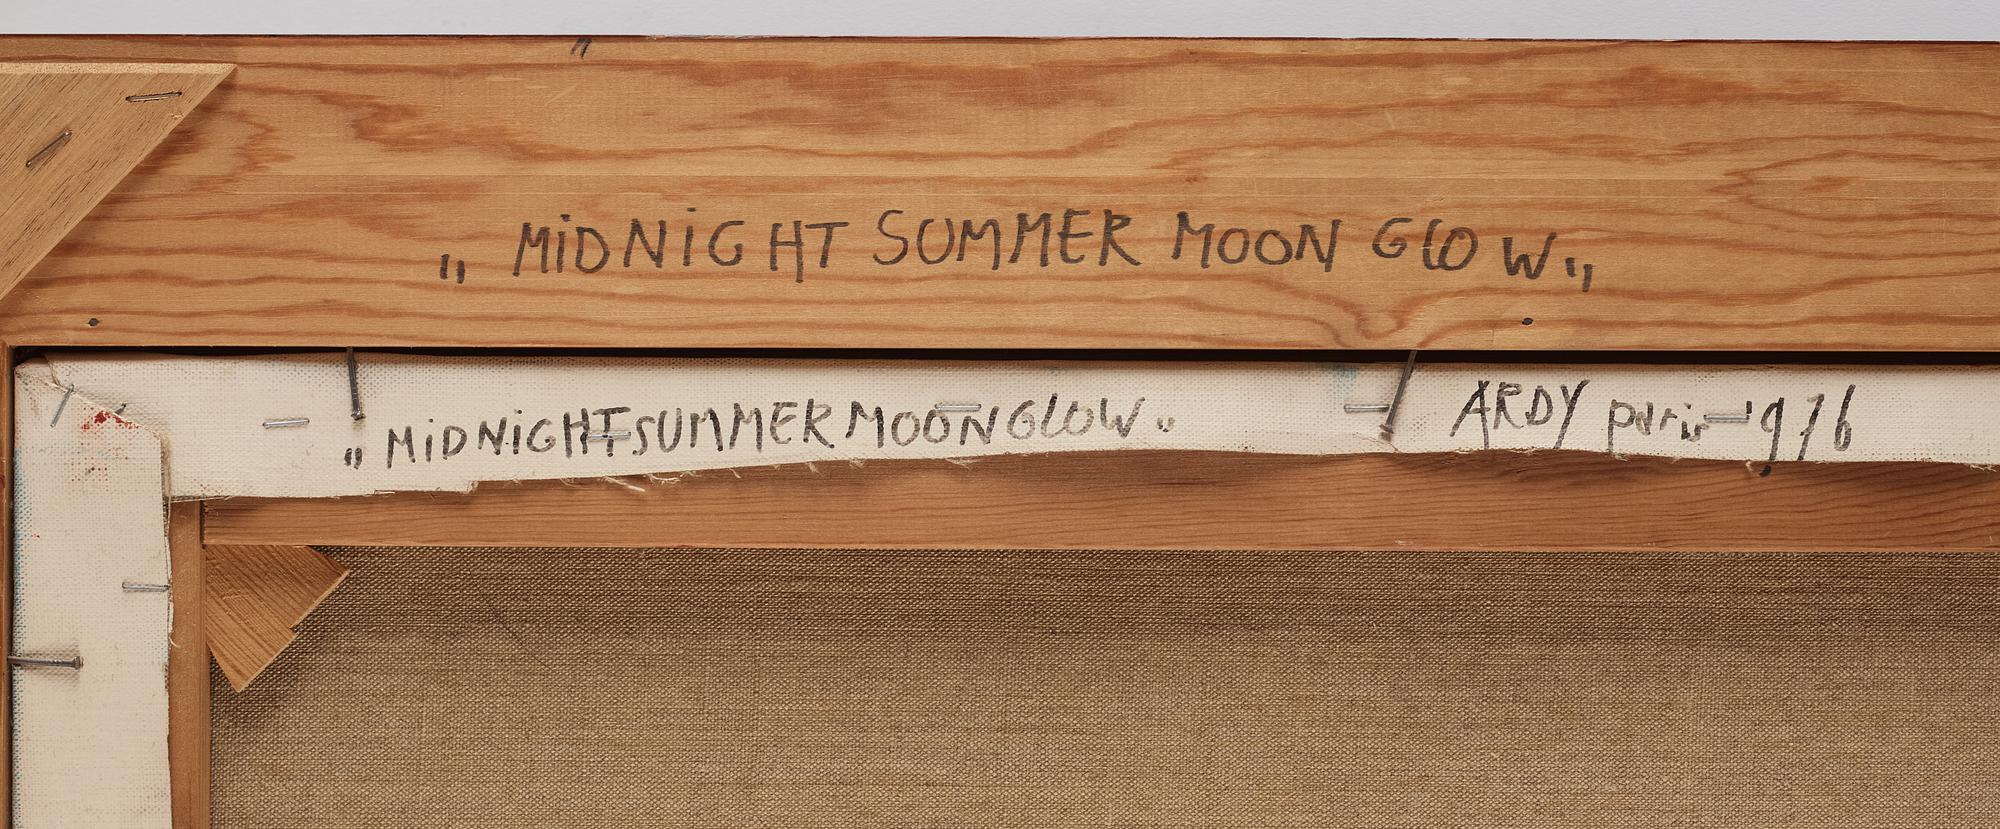 „ MiDNiGHT SUMMER MOON GlOW „
„ MiDNiGHT SUMMER MOON GlOW „ ARDY paris 1976